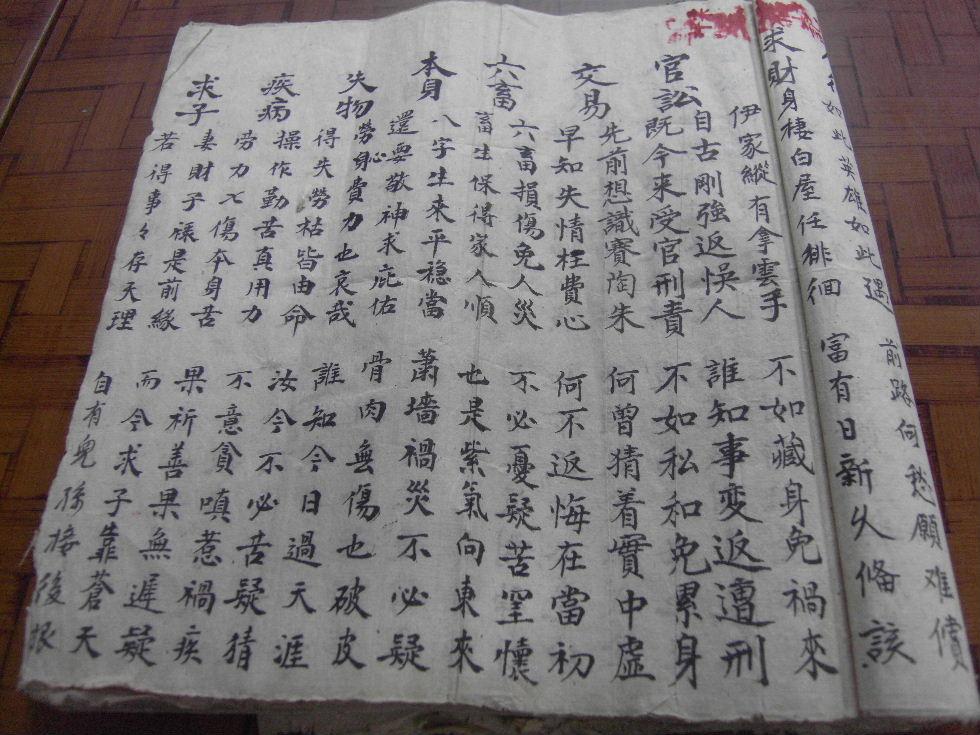 得如此英雄如此遇 前路何愁願难償
求財 身棲白屋任徘徊 富有日新久俻該
伊家縱有拿雲手 不如藏身免禍來
官訟 自古剛強返悞人 誰知事變返遭刑
既今來受官刑責 不如私和免累身
交易 先前想識賽陶朱 何曾猜着實中虛
早知失情枉費心 何不返悔在當初
六畜 六畜損傷免人災 不必憂疑苦罣懷
畜生保得家人順 也是紫氣向東來
本身 八字生來平穩當 蕭墻禍災不必疑
還要敬神求庇佑 骨肉無傷也破皮
失物 勞心身費力也哀哉 誰知今日過天涯
得失勞枯皆由命 汝今不必苦疑猜
疾病 操作勤苦真用力 不意貪嗔惹禍疾
劳力又傷本身苦 果祈善果無遲疑
求子 妻財子祿是前緣 而今求子靠蒼天
若得事々存天理 自有兒孫接後根